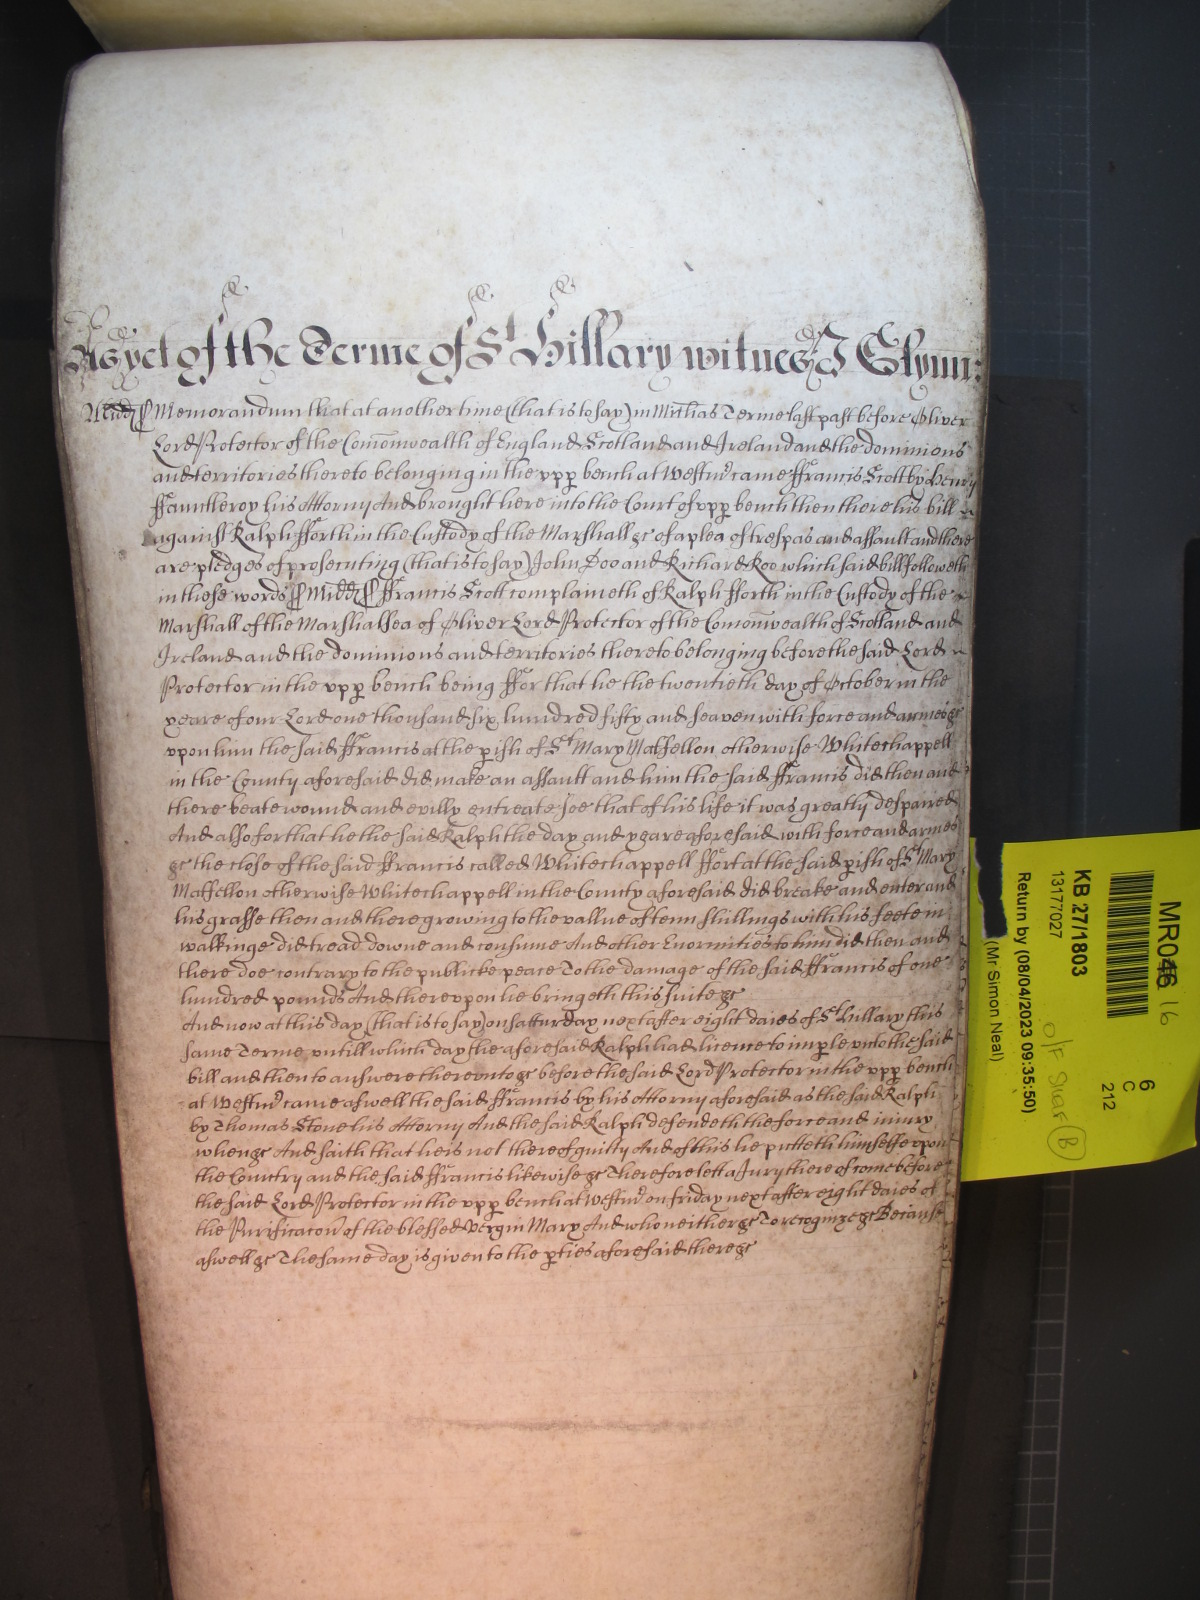 As yet of the Terme of St Hillary witnes J Glynn:
Midd ss Memorandum that at another time (that is to say) in Michas Terme last past before Oliver
Lord Protector of the Comonwealth of England Scotland and Ireland and the dominions
and territories thereto belonging in the vpp bench at Westmr came ffrancis Scott by Henry
ffauntleroy his Attorny And brought here into the Court of vpp bench then there his bill
against Ralph fforth in the Custody of the Marshall &c of a plea of trespas and assault and there
are pledges of prosecuting (that is to say) John Doo and Richard Roo which said bill followeth
in these words ss Midd ss ffrancis Scott complaineth of Ralph fforth in the Custody of the
Marshall of the Marshalsea of Oliver Lord Protector of the Comonwealth of Scotland and
Ireland and the dominions and territories thereto belonging before the said Lord
Protector in the vpp bench being ffor that he the twentieth day of October in the
yeare of our Lord one thousand six hundred fifty and seaven with force and armes &c
vpon him the said ffrancis at the pish of St Mary Matfellon otherwise Whitechappell
in the County aforesaid did make an assault and him the said ffrancis did then and
there beate wound and evilly entreate soe that of his life it was greatly despaired
And also for that he the said Ralph the day and yeare aforesaid with force and armes
&c the close of the said ffrancis called Whitechappell ffort at the said pish of St Mary
Matfellon otherwise Whitechappell in the County aforesaid did breake and enter and
his grasse then and there growing to the vallue of tenn shillings with his feete in
walkinge did tread downe and consume And other Enormities to him did then and
there doe contrary to the publicke peace To the damage of the said ffrancis of one
hundred pounds And therevpon he bringeth this suite &c
And now at this day (that is to say) on satturday next after eight daies of St Hillary this
same Terme vntill which day the aforesaid Ralph had licence to imple vnto the said
bill and then to answere therevnto &c before the said Lord Protector in the vpp bench
at Westmr came aswell the said ffrancis by his Attorny aforesaid as the said Ralph
by Thomas Stone his Attorny And the said Ralph defendeth the force and iniury
when &c And saith that he is not thereof guilty And of this he putteth himselfe vpon
the Country and the said ffrancis likewise &c Therefore lett a Jury thereof come before
the said Lord Protector in the vpp bench at Westmr on friday next after eight daies of
the Purificacon of the blessed Vergin Mary And who neither &c To recognize &c Because
aswell &c The same day is given to the pties aforesaid there &c
MR046 16
6
C
212
KB 27/1803
13177027
O/F
B
Return by (08/04/2023 09:35:50)
(Mr Simon Neal)